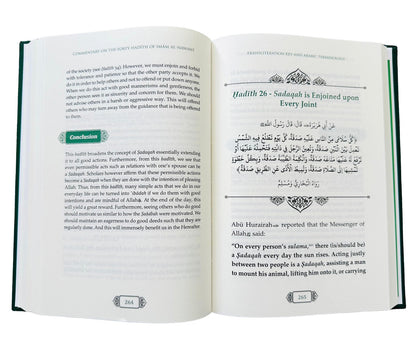 COMMENTARY ON THE FORTY HADITH OF IMAM AL-NAWAWI
of the society (see Hadith 34). However, we must enjoin and forbid
with tolerance and patience so that the other party accepts it. We
aim for others to benefit and not to offend or put down anyone.
When we do this act with good mannerisms and gentleness, the
other person sees it as sincerity and concern for them. We should
not advise others in a harsh or aggressive way. This will offend
them and push them away.
Conclusion
This hadith broadens the concept of Sadaqah essentially extending
it to all good actions. Furthermore, from this hadith, we see that
even permissible acts such as relations with one's spouse can be
Sadaqah. Scholars however affirm that these permissible actions
become a Sadaqah when they are done with the intention of pleasing
Allah. Thus, from this hadith, many simple acts that we do in our
everyday life can be turned into 'ibadah if we do them with good
intentions and are mindful of Allah. At the end of the day, this
will yield a great reward. Furthermore, seeing others who do good
should motivate us similar to how the Sahabah were motivated. This
should motivate an eagerness to do good deeds such that they are
regularly done. And this will immensely benefit us in the Hereafter.
264
TRANSLITERATION KEY AND ARABIC TERMINOLOGY
Ḥadīth 26 - Sadaqah is Enjoined upon
Every Joint
عَنْ أَبِي هُرَيْرَةَ، قَالَ: قَالَ رَسُولُ اللهِ ﷺ
«كُلُّ سُلَامَى مِنَ النَّاسِ عَلَيْهِ صَدَقَةٌ، كُلَّ يَوْمٍ تَطْلُعُ فِيهِ الشَّمْسُ
رَوَاهُ الْبُخَارِيُّ وَمُسْلِمٌ
Abū Hurairah reported that the Messenger of
Allah ﷺ said:
"On every person's sulama, there (is/should be)
a Ṣadaqah every day the sun rises. Acting justly
between two people is a Ṣadaqah, assisting a man
to mount his animal, lifting him onto it, or carrying
265